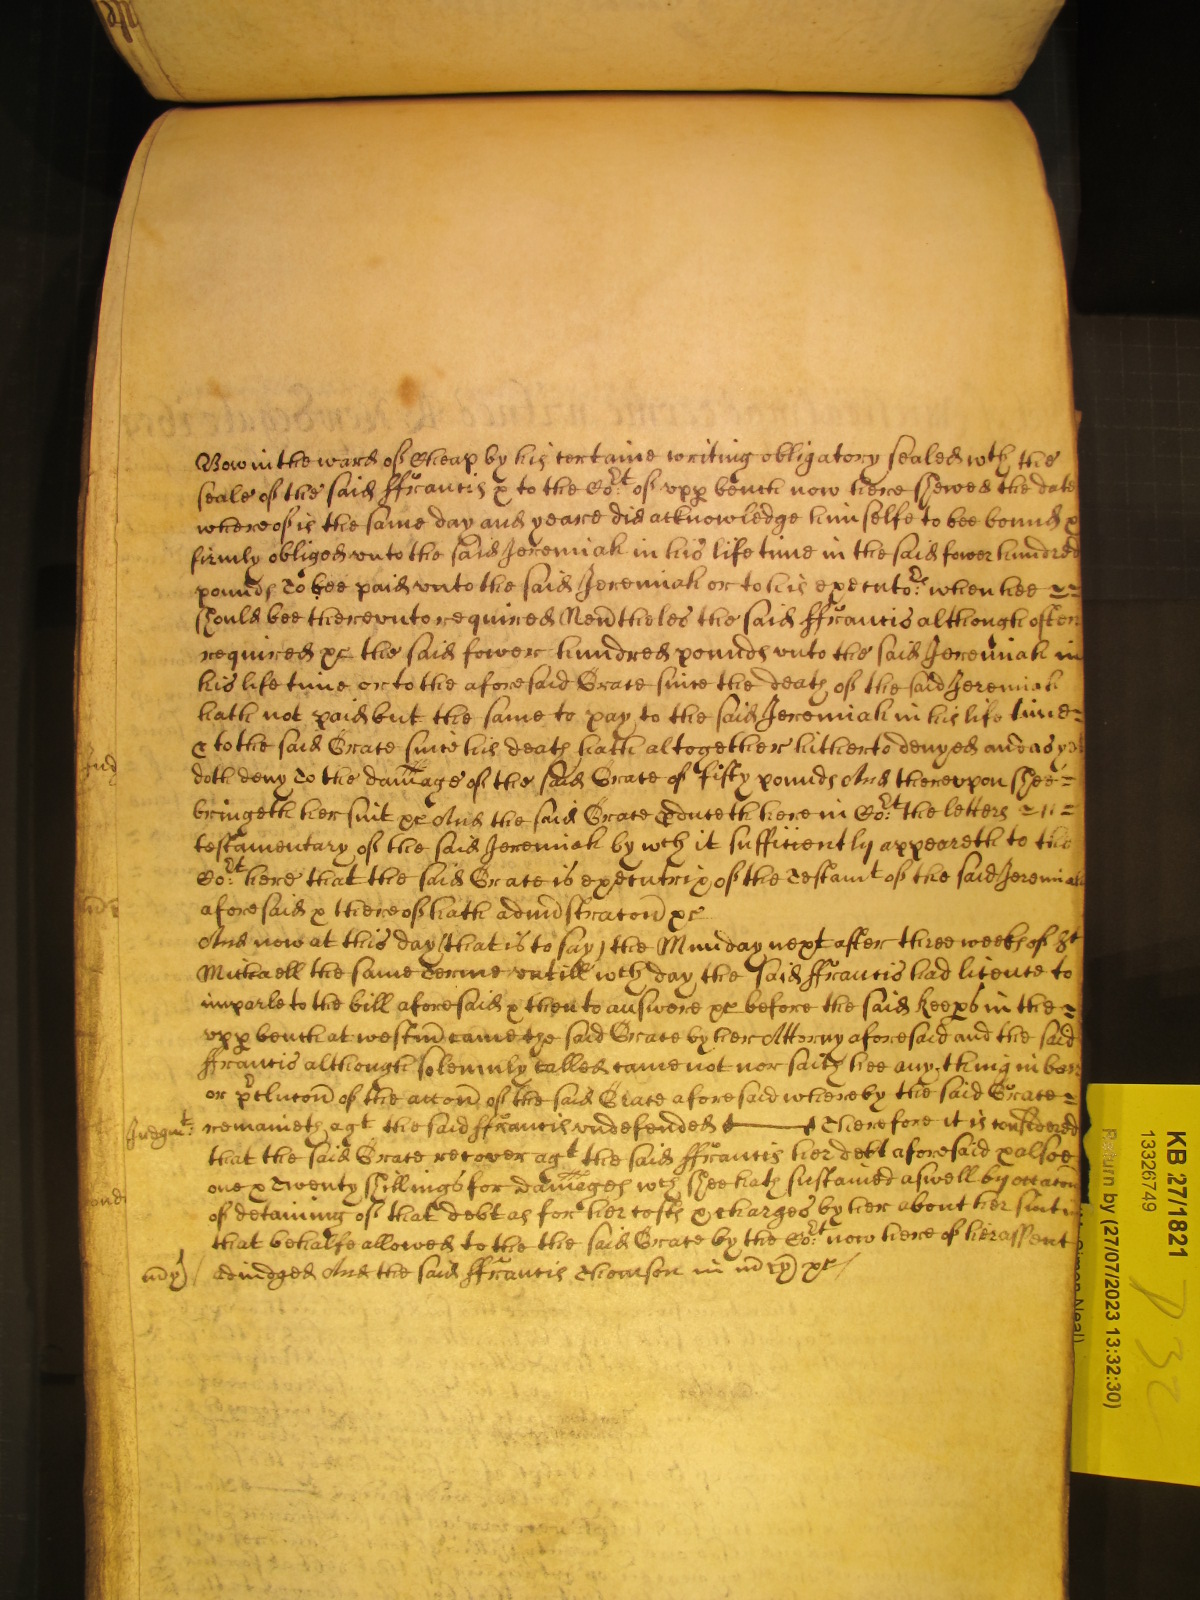 Bow in the ward of Cheap by his certaine writing obligatory sealed wth the
seale of the said ffrancis & to the Cort of upp bench now here shewed the date
whereof is the same day and yeare did acknowledge himselfe to bee bound &
firmly obliged unto the said Jeremiah in his life time in the said fower hundred
pounds To bee paid unto the said Jeremiah or to his executors when hee
should bee thereunto required Nevtheles the said ffrancis although often
required &c the said fower hundred pounds unto the said Jeremiah in
his life time or to the aforesaid Grace since the death of the said Jeremiah
hath not paid but the same to pay to the said Jeremiah in his life time
& to the said Grace since his death hath altogether hitherto denyed and as yet
doth deny To the damage of the said Grace of fifty pounds And thereupon shee
bringeth her suit &c And the said Grace pduceth here in Cort the letters
testamentary of the said Jeremiah by wch it sufficiently appeareth to the
Cort here that the said Grace is executrix of the Testamt of the said Jeremiah
aforesaid & thereof hath admstracon &c
And now at this day (that is to say) the Munday next after three weeks of St
Michaell the same Terme untill wch day the said ffrancis had licence to
imparle to the bill aforesaid & then to answere &c before the said Keeps in the
upp bench at westm came the said Grace by her Attorny aforesaid and the said
ffrancis although solemnly called came not nor saith hee any thing in barr
or pclucon of the accon of the said Grace aforesaid whereby the said Grace
Judgmt: remaineth agt the said ffrancis undefended Therefore it is considered
that the said Grace recover agt the said ffrancis her debt aforesaid & alsoe
one & Twenty shillings for damages wch shee hath sustained aswell by occacon
of detaining of that debt as for her costs & charges by her about her suit in
that behalfe allowed to the the said Grace by the Cort now here of her assent
mcy adiudged And the said ffrancis Thomson in mcy &c
KB 27/1821
13326749
Return by (27/07/2023 13:32:30)
Simon Neal)
P 32